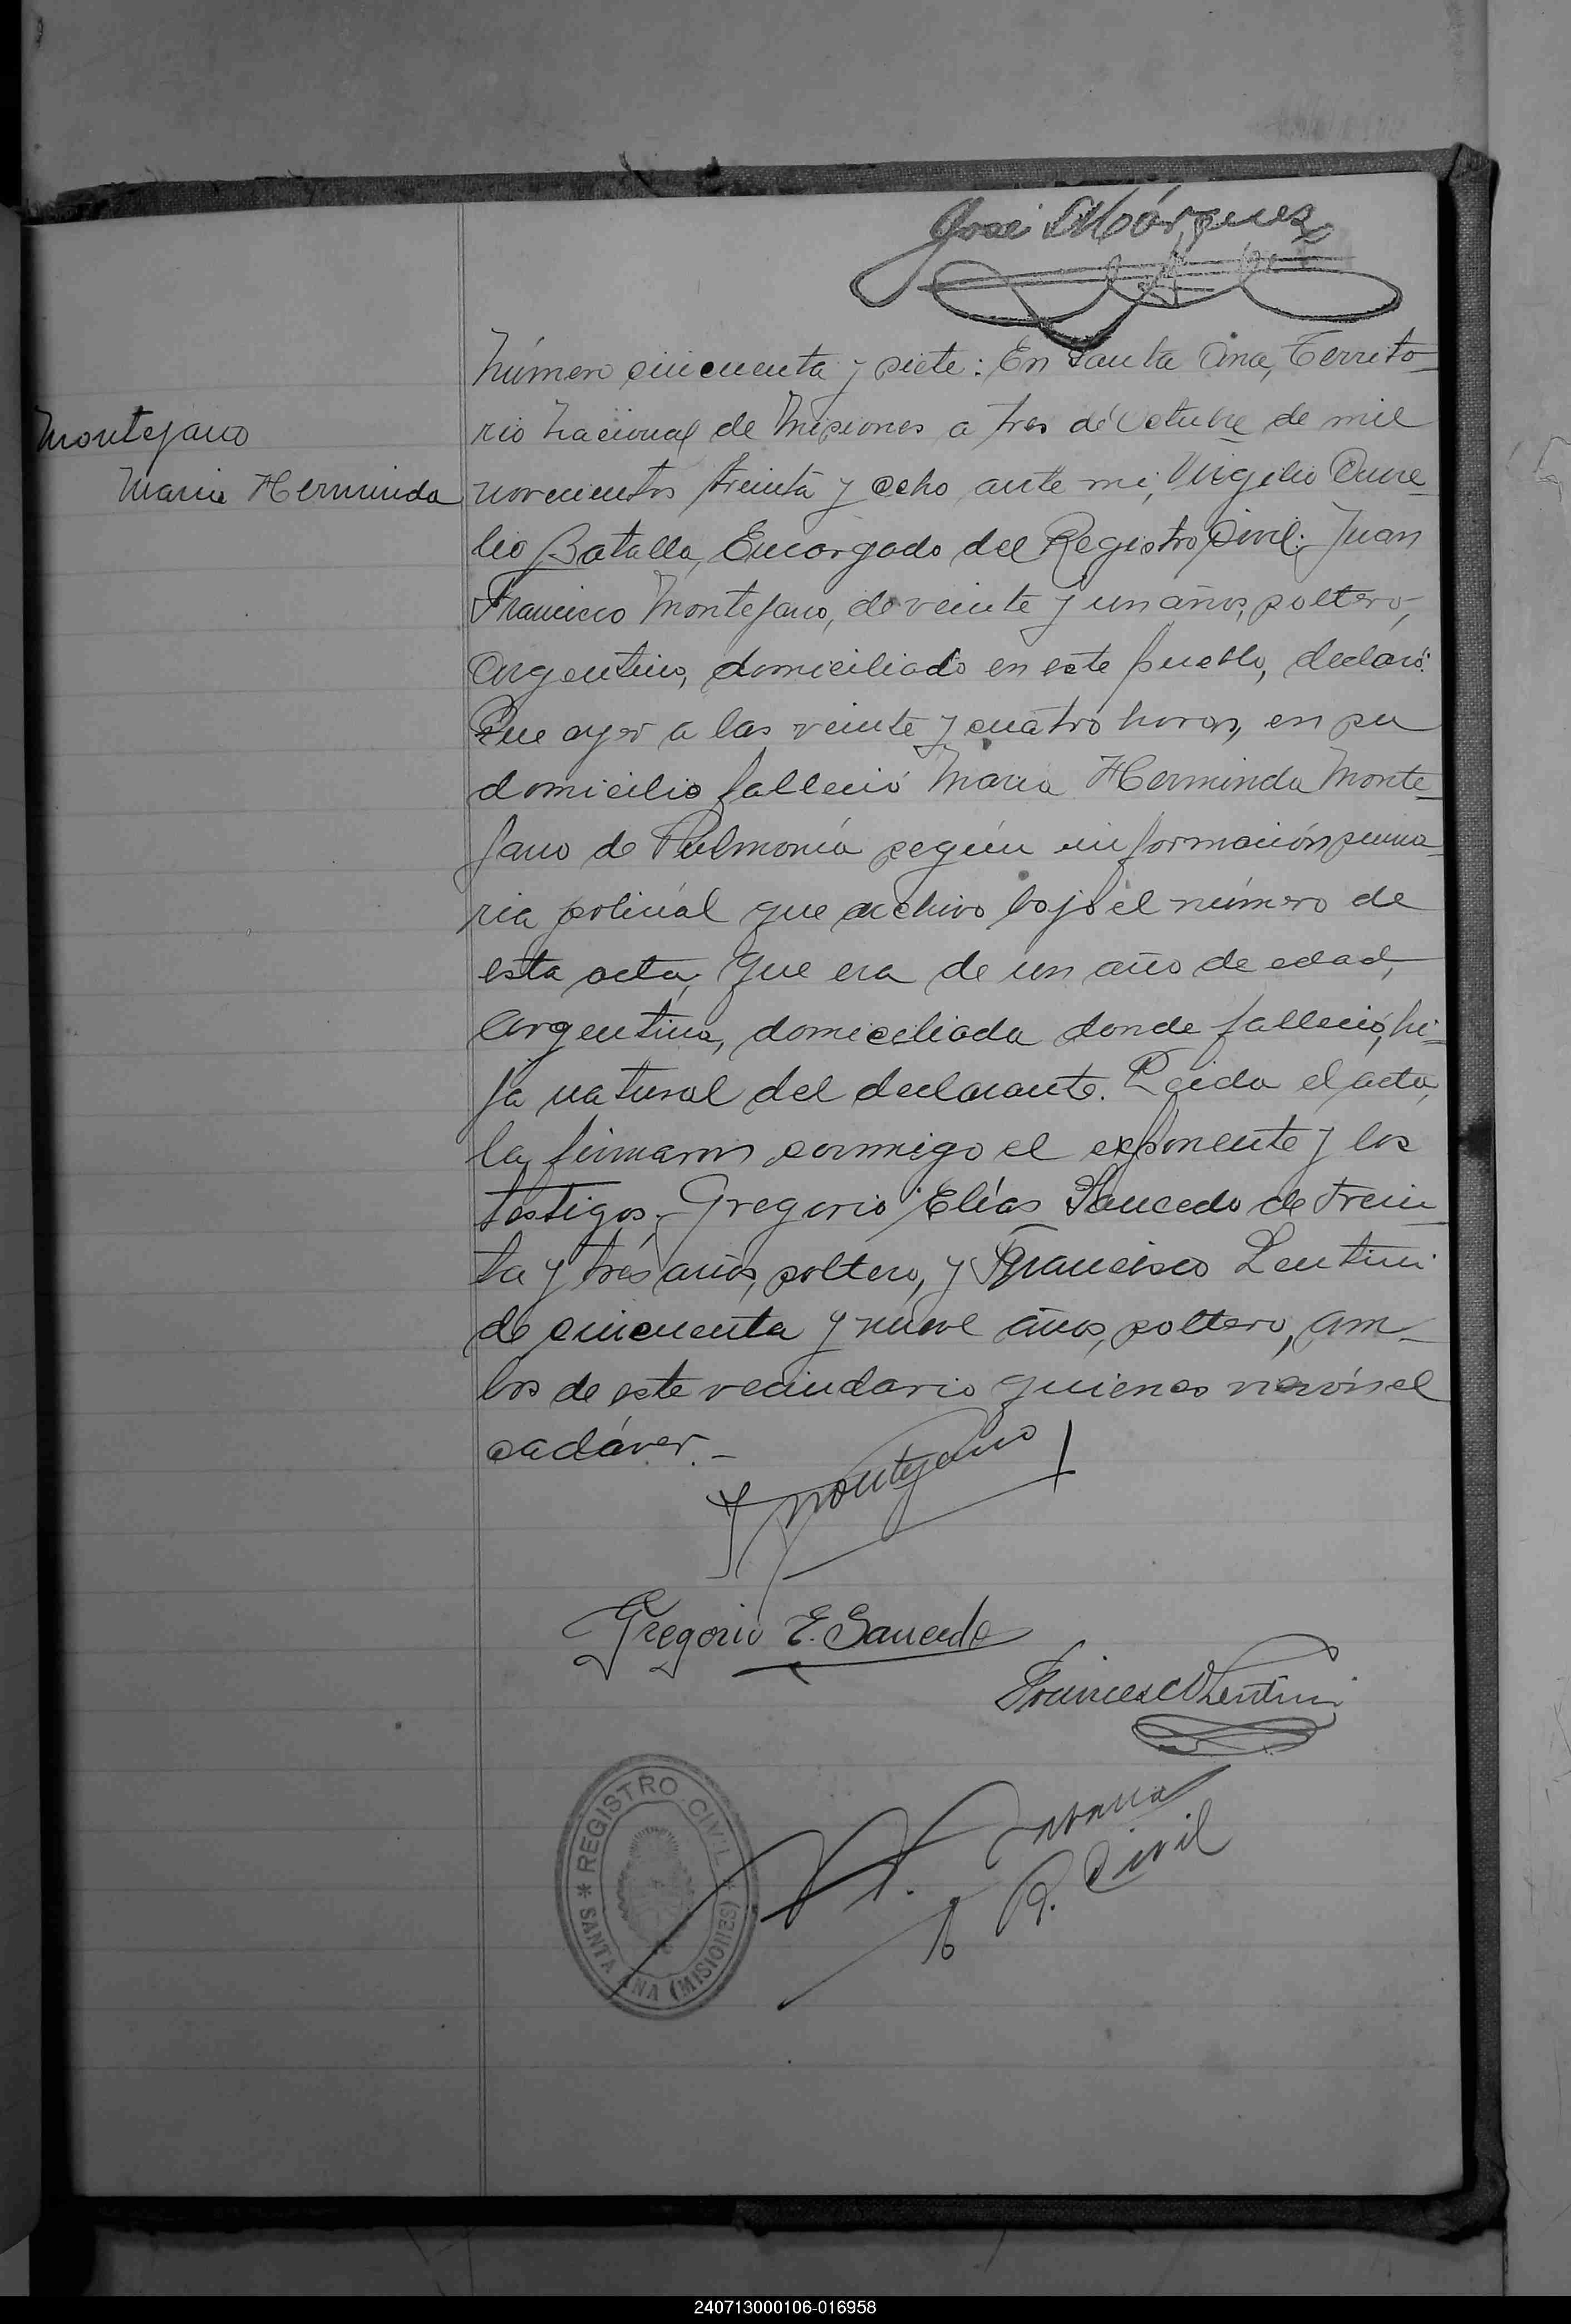 José Márquez
Número cincuenta y siete: En Santa Ana, Territo-
Montejano
rio Nacional de Misiones a tres de Octubre de mil
Maria Herminda
novecientos treinta y ocho ante mi, Virgilio Aure-
lio Batalla, Encargado del Registro Civil: Juan
Francisco Montejano, de veinte y un años, soltero,
Argentino, domiciliado en este pueblo, declaró:
Que ayer a las veinte y cuatro horas, en su
domicilio falleció Maria Herminda Monte-
jano de Pulmonía según información suma-
ria policial que archivo bajo el número de
esta acta, Que era de un año de edad,
Argentina, domiciliada donde falleció, hi-
ja natural del declarante. Leida el acta,
la firmaron conmigo el exponente y los
testigos, Gregorio Elías Saucedo de trein-
ta y tres años, soltero, y Francisco Lentini
de cincuenta y nueve años, soltero, am-
bos de este vecindario quienes vieron el
cadáver.-
Montejano
Gregorio E. Saucedo
Francesco Lentini
REGISTRO CIVIL
SANTA ANA (MISIONES)
R. Civil
240713000106-016958